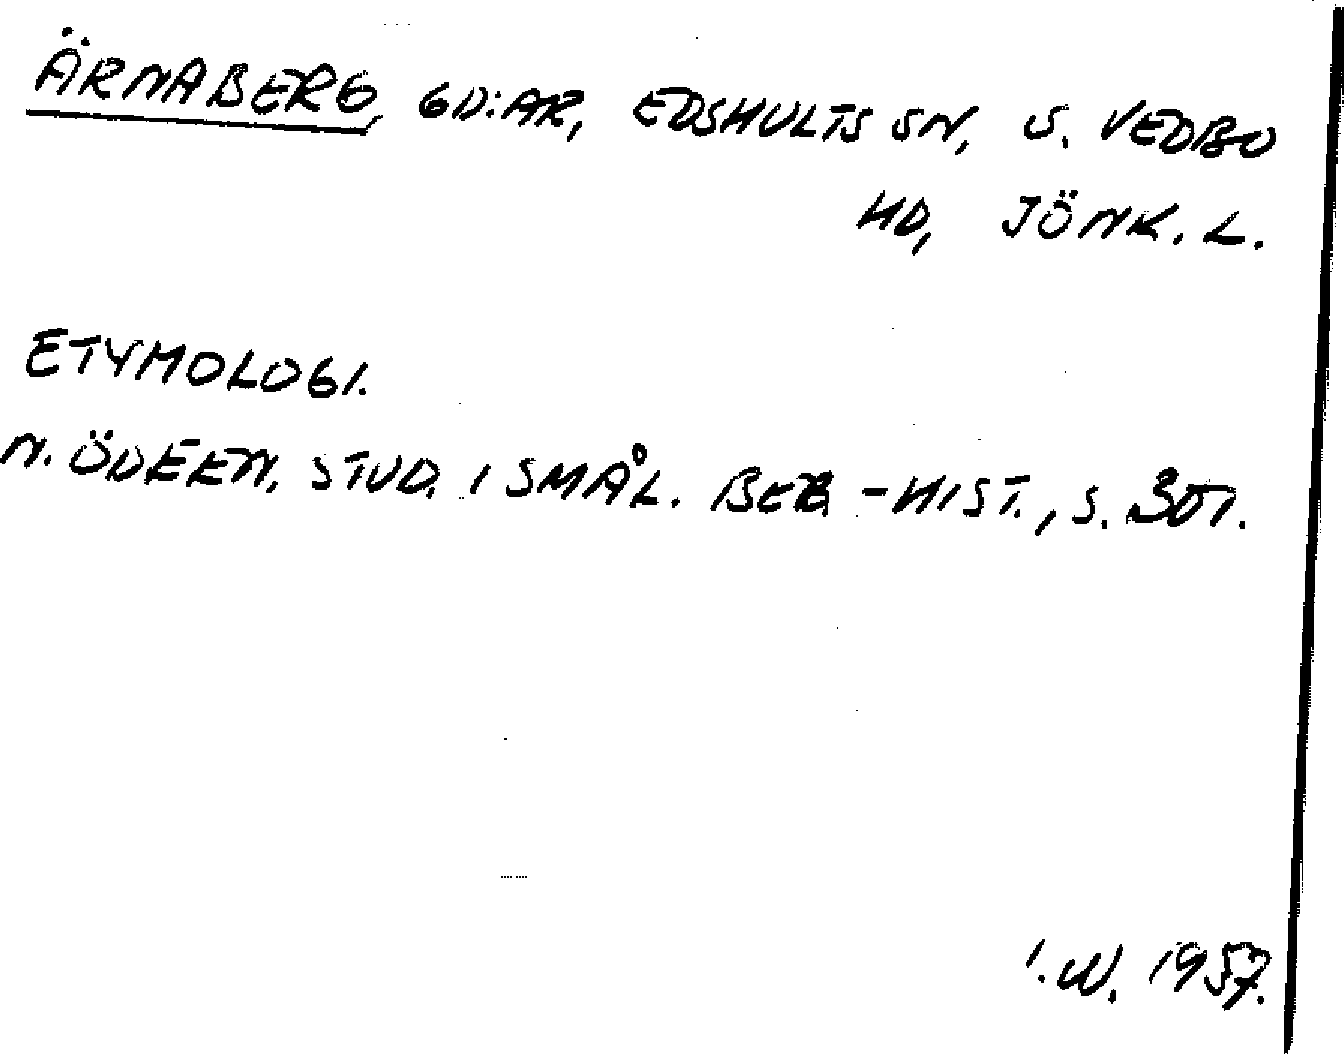 ÄRNABERG, GD:AR, EDSHULTS SN, S. VEDBO
HD, JÖNK. L.
ETYMOLOGI.
N. ÖDEEN, STUD. I SMÅL. BEB-HIST., S. 301.
I.W. 1957.